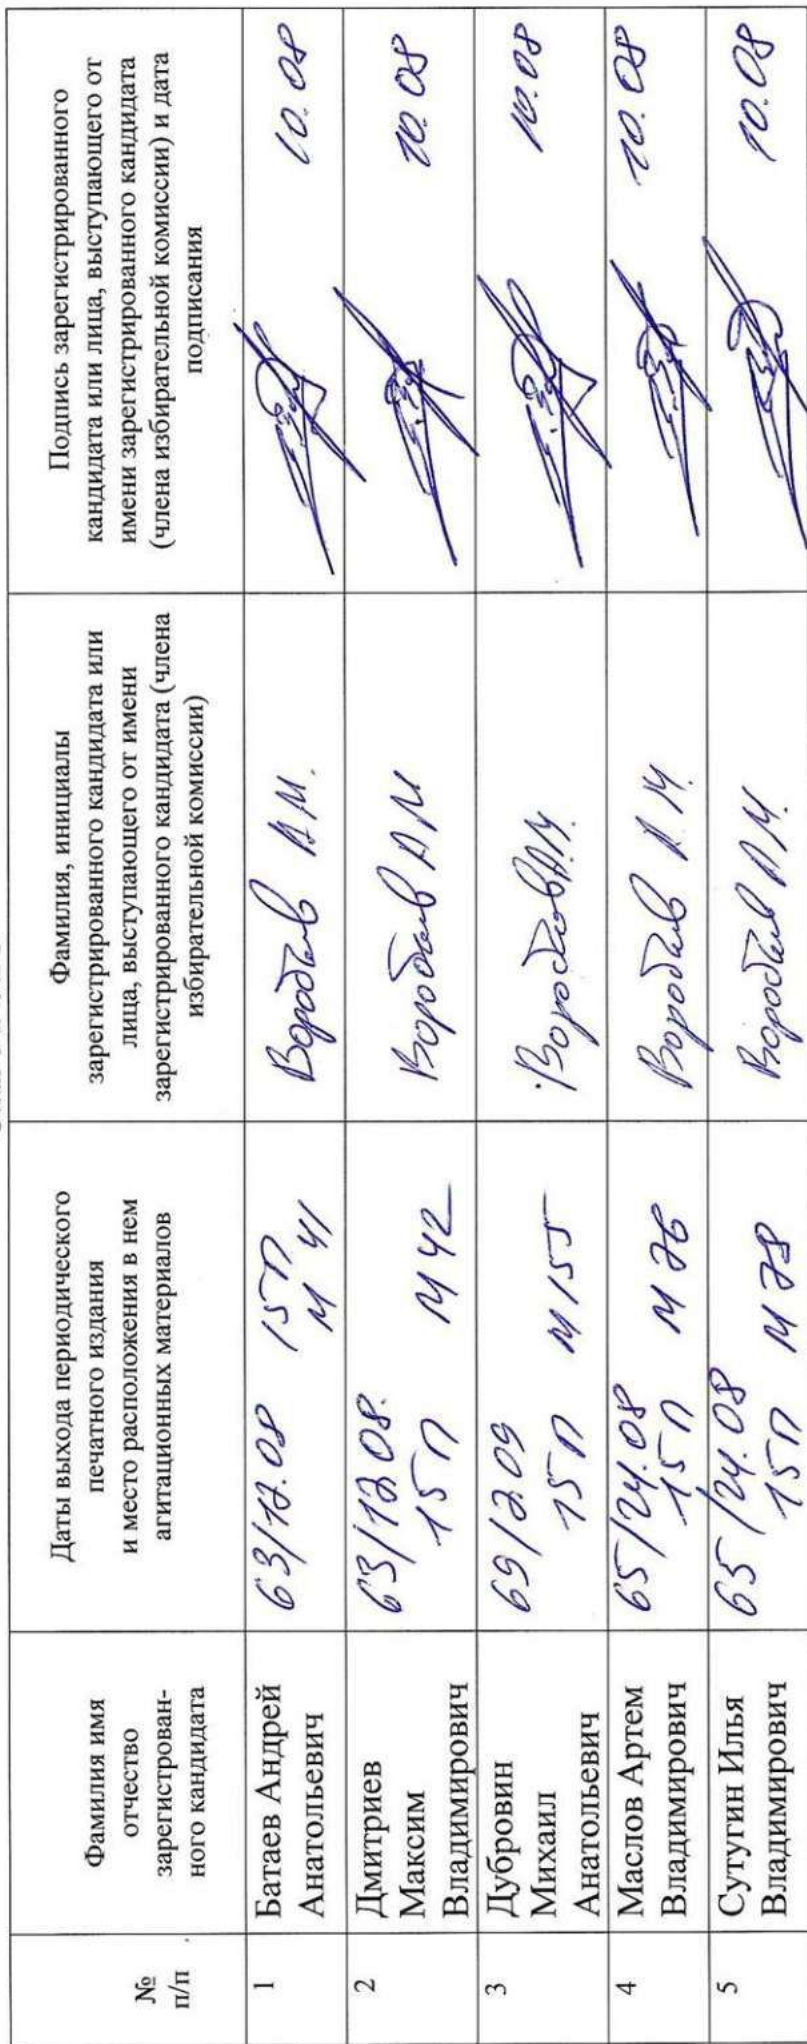 №
п/п
Фамилия имя
отчество
зарегистрирован-
ного кандидата
Даты выхода периодического
печатного издания
и место расположения в нем
агитационных материалов
Фамилия, инициалы
зарегистрированного кандидата или
лица, выступающего от имени
зарегистрированного кандидата (члена
избирательной комиссии)
Подпись зарегистрированного
кандидата или лица, выступающего от
имени зарегистрированного кандидата
(члена избирательной комиссии) и дата
подписания
1
Батаев Андрей
Анатольевич
63/17.08 15П
М 41
Воробьев А.М.
10.08
2
Дмитриев
Максим
Владимирович
63/17.08.
15П М42
Воробьев А М
10.08
3
Дубровин
Михаил
Анатольевич
69/7.09
15П М155
Воробьев А.М.
10.08
4
Маслов Артем
Владимирович
65/24.08
15П М 76
Воробьев А М.
10.08
5
Сутугин Илья
Владимирович
65/24.08
15П М 78
Воробьев А М.
10.08